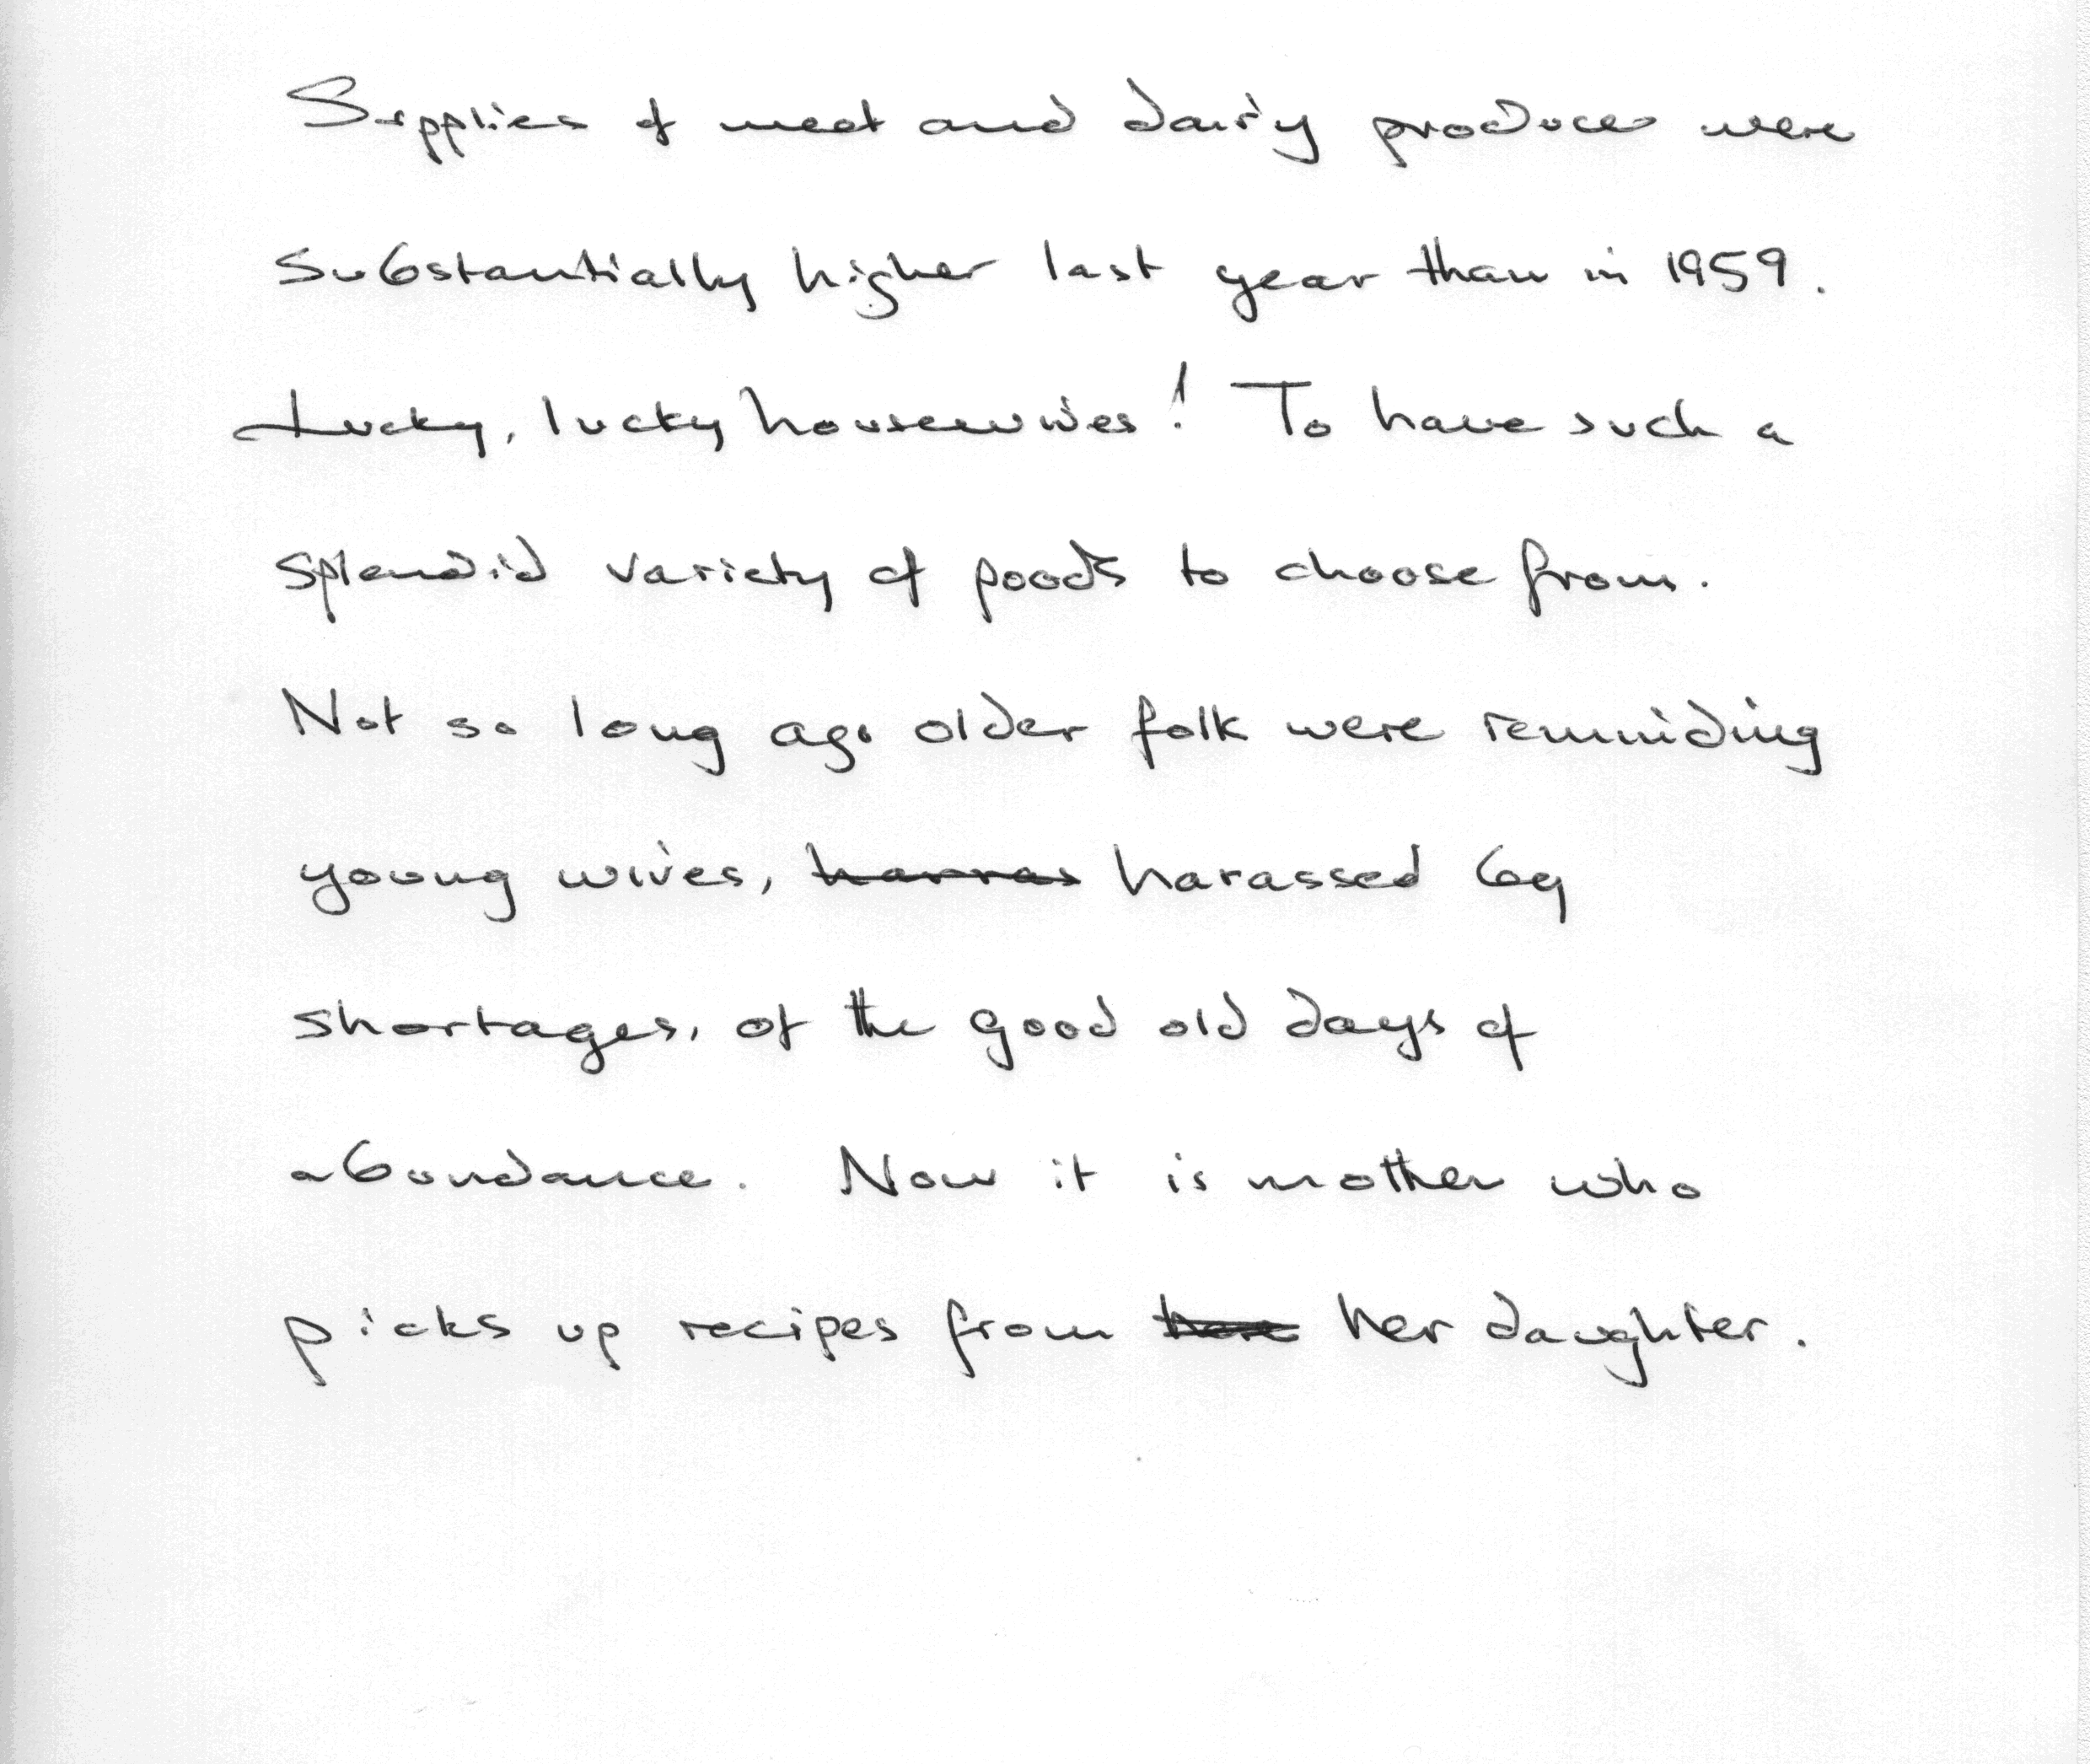 Supplies of meat and dairy produce were
substantially higher last year than in 1959.
Lucky, lucky housewives! To have such a
splendid variety of foods to choose from.
Not so long ago older folk were reminding
young wives, ~~harras~~ harassed by
shortages, of the good old days of
abundance. Now it is mother who
picks up recipes from her daughter.